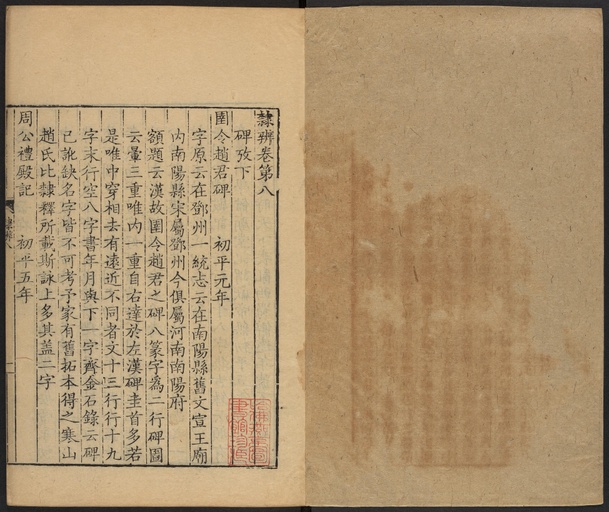 隸辨卷第八
碑攷下
圉令趙君碑　初平元年
字原云在鄧州一統志云在南陽縣舊文宣王廟
内南陽縣宋屬鄧州今俱屬河南南陽府
額題云漢故圉令趙君之碑八篆字為二行碑圖
云暈三重唯内一重自右達於左漢碑圭首多若
是唯中穿相去有遠近不同者文十三行行十九
字末行空八字書年月與下一字齊金石錄云碑
已訛缺名字皆不可考予家有舊拓本得之寒山
趙氏比隸釋所載斯詠上多其盖二字
周公禮殿記　初平五年